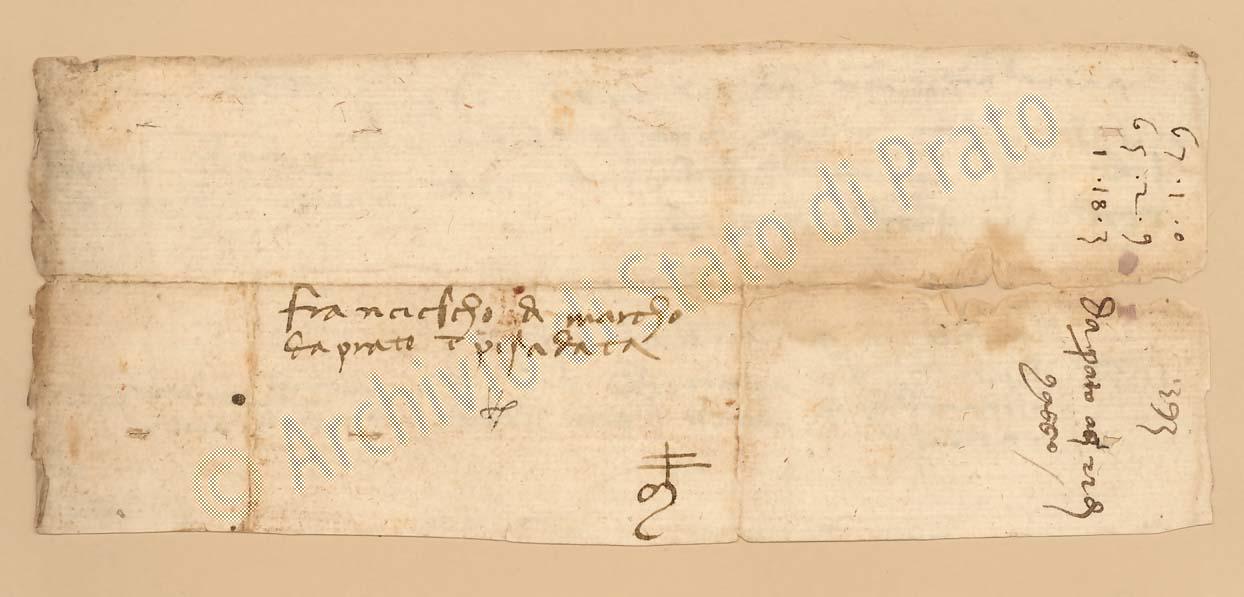 franciescho di marcho
da prato in pisa data
67 . 1 . 0
65 . 2 . 9
1 . 18 . 3
1393
da prato adì
© Archivio di Stato di Prato